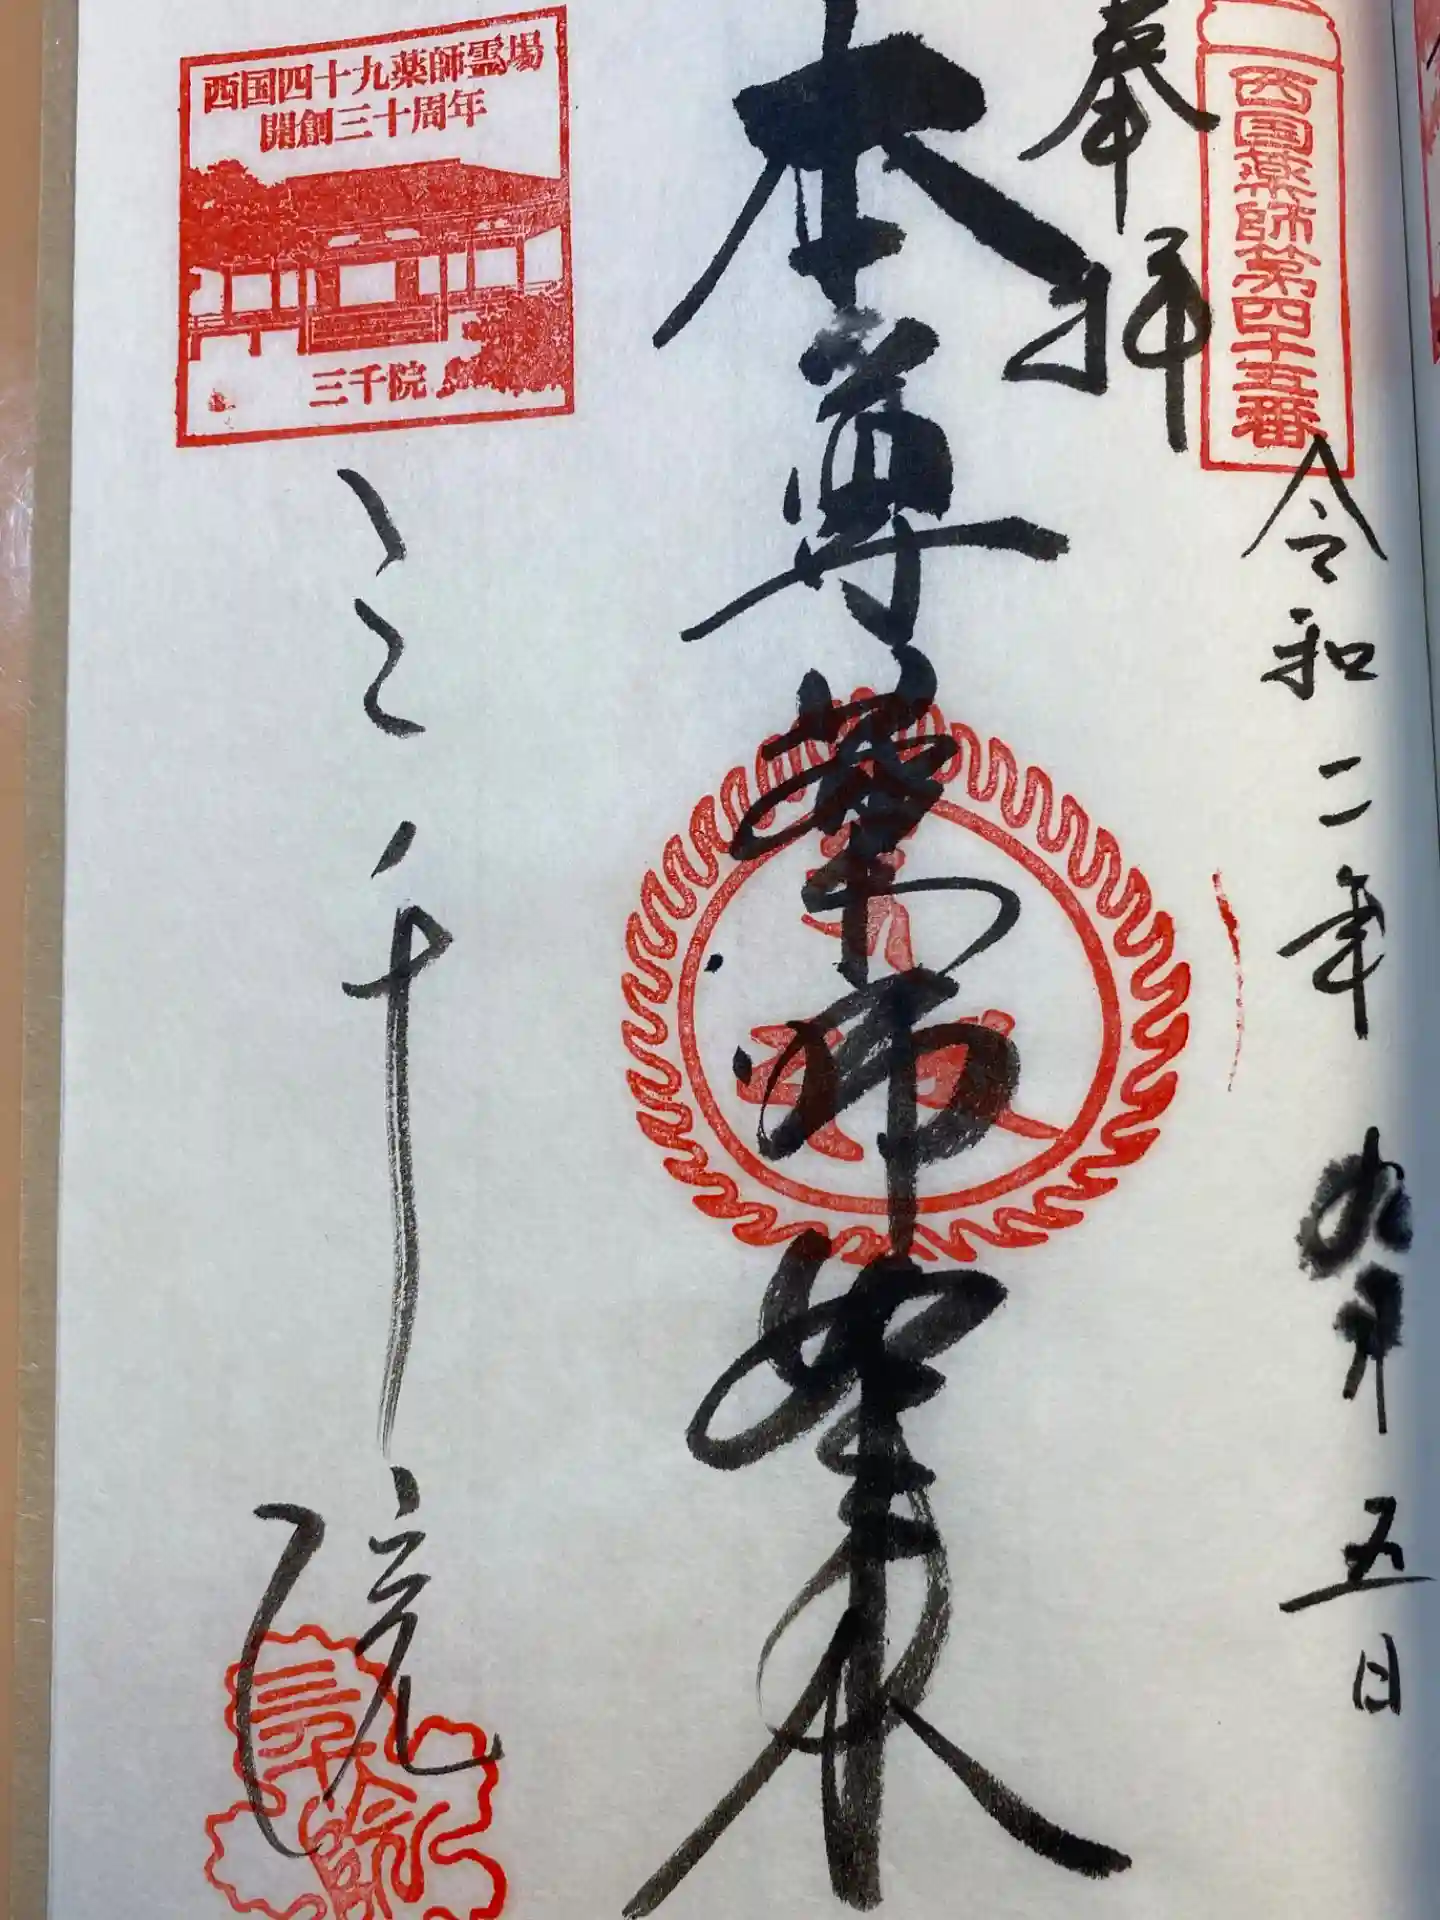 西国薬師第四十五番
奉拝
令和二年九月五日
本尊薬師如来
西国四十九薬師霊場
開創三十周年
三千院
三千院